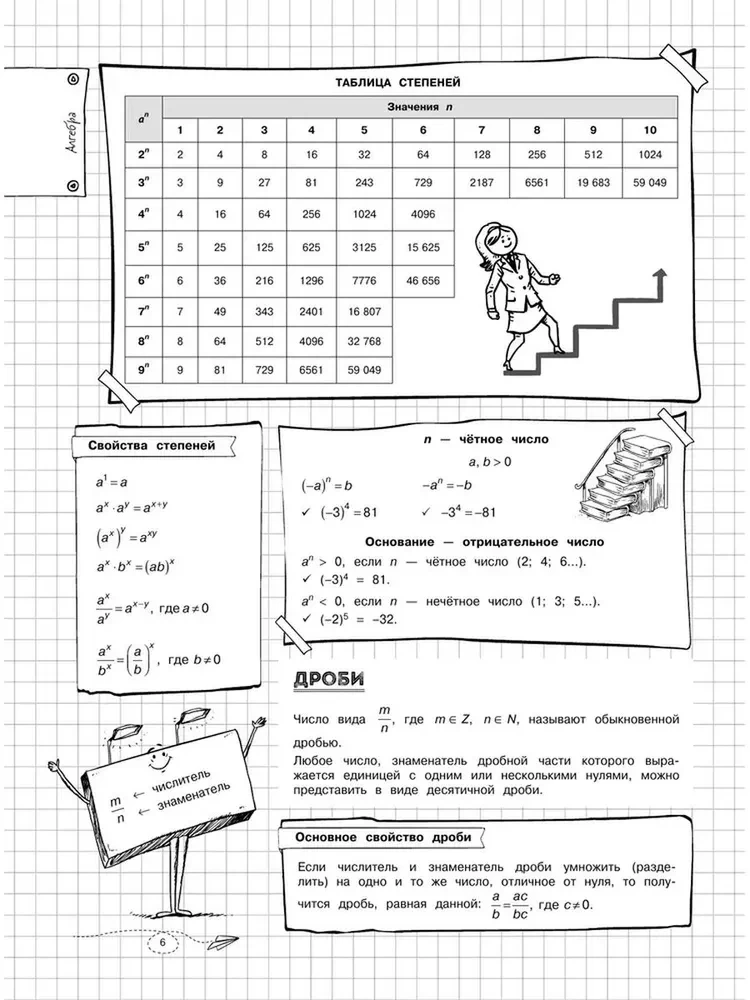 Алгебра
ТАБЛИЦА СТЕПЕНЕЙ
aⁿ Значения n
1 2 3 4 5 6 7 8 9 10
2ⁿ 2 4 8 16 32 64 128 256 512 1024
3ⁿ 3 9 27 81 243 729 2187 6561 19 683 59 049
4ⁿ 4 16 64 256 1024 4096
5ⁿ 5 25 125 625 3125 15 625
6ⁿ 6 36 216 1296 7776 46 656
7ⁿ 7 49 343 2401 16 807
8ⁿ 8 64 512 4096 32 768
9ⁿ 9 81 729 6561 59 049
Свойства степеней
a¹ = a
aˣ · aʸ = aˣ⁺ʸ
(aˣ)ʸ = aˣʸ
aˣ · bˣ = (ab)ˣ
aˣ/aʸ = aˣ⁻ʸ, где a ≠ 0
aˣ/bˣ = (a/b)ˣ, где b ≠ 0
n — чётное число
a, b > 0
(−a)ⁿ = b −aⁿ = −b
✓ (−3)⁴ = 81 ✓ −3⁴ = −81
Основание — отрицательное число
aⁿ > 0, если n — чётное число (2; 4; 6...).
✓ (−3)⁴ = 81.
aⁿ < 0, если n — нечётное число (1; 3; 5...).
✓ (−2)⁵ = −32.
ДРОБИ
Число вида m/n, где m ∈ Z, n ∈ N, называют обыкновенной
дробью.
Любое число, знаменатель дробной части которого выра-
жается единицей с одним или несколькими нулями, можно
представить в виде десятичной дроби.
m ← числитель
n ← знаменатель
Основное свойство дроби
Если числитель и знаменатель дроби умножить (разде-
лить) на одно и то же число, отличное от нуля, то полу-
чится дробь, равная данной: a/b = ac/bc, где c ≠ 0.
6